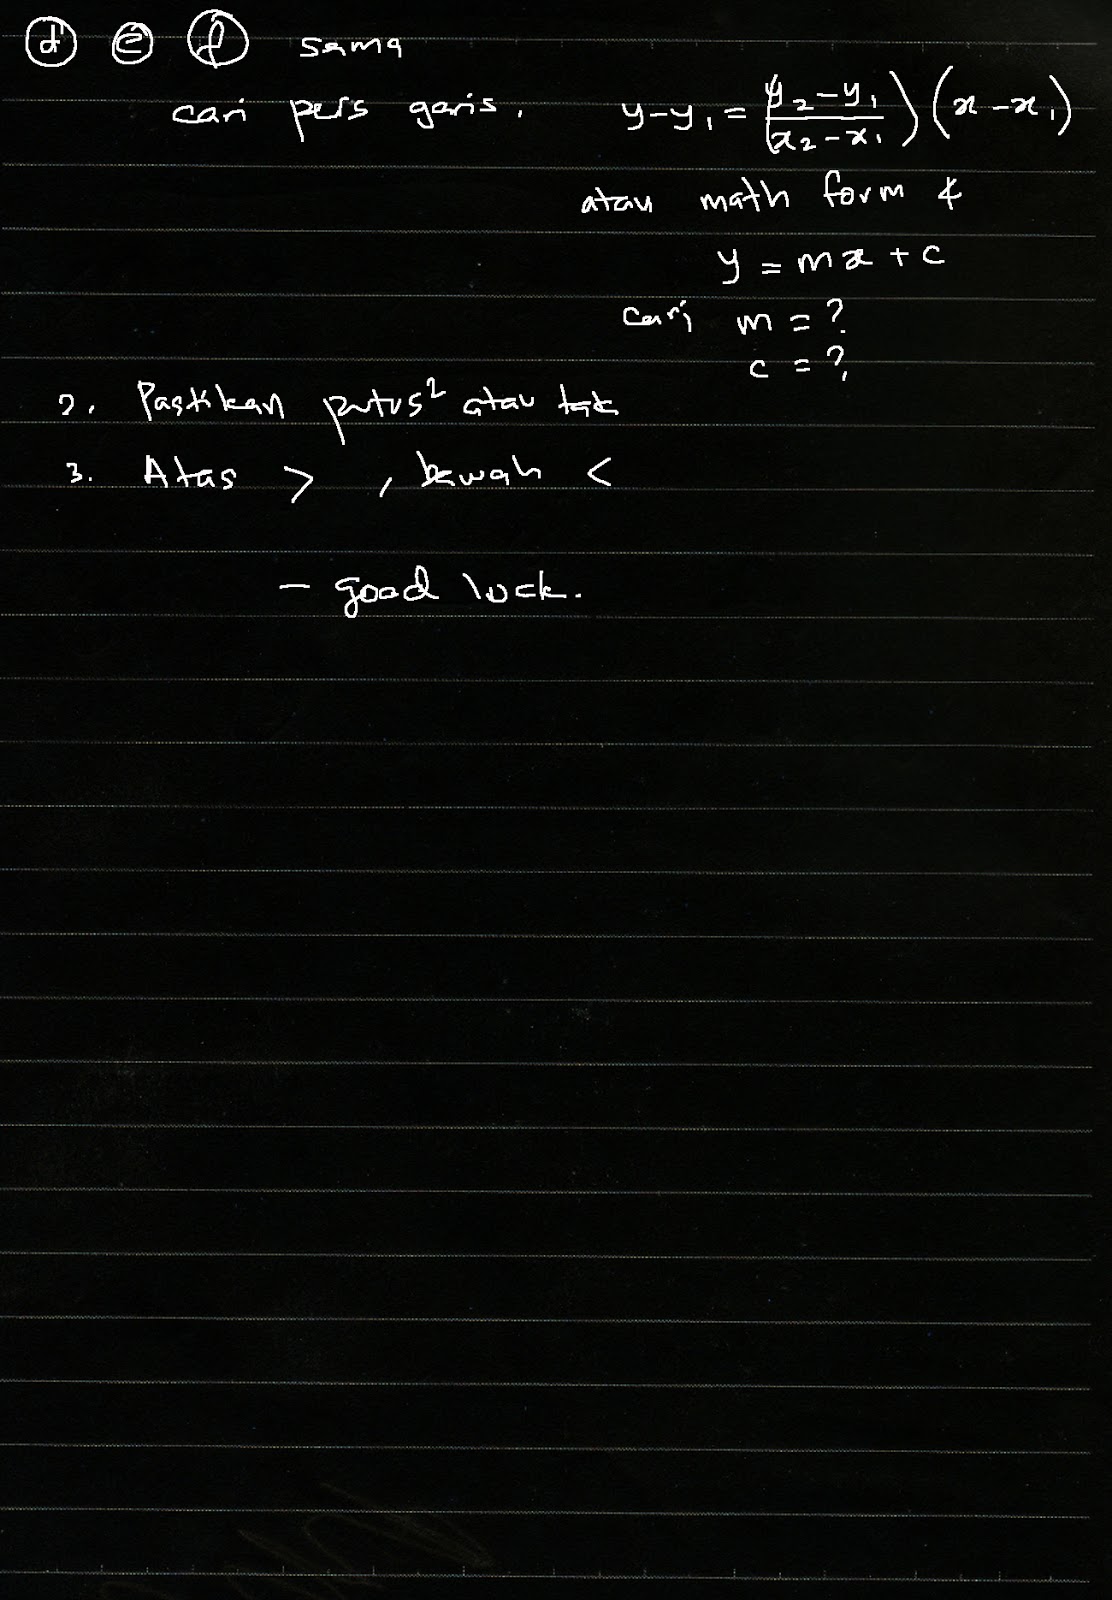 d e f sama
cari pers garis, y-y₁ = (y₂-y₁/x₂-x₁)(x-x₁)
atau math form 4
y = mx + c
cari m = ?
c = ?
2. Pastikan putus² atau tak
3. Atas > , bawah <
- good luck.